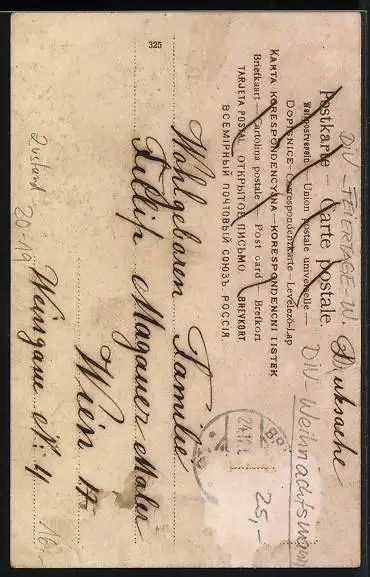 Postkarte — Carte postale
Weltpostverein — Union postale universelle
DOPISNICE — Correspondenzkarte — Levelező-Lap
KARTA KORESPONDENCYJNA — KORESPONDENČNI LISTEK
Briefkaart — Cartolina postale — Post card — Brefkort
TARJETA POSTAL. ОТКРЫТОЕ ПИСЬМО. BREVKORT.
ВСЕМІРНЫЙ ПОЧТОВЫЙ СОЮЗЪ. РОССІЯ.
DIV-FEIERTAGE-W.
Druksache
DIV-Weihnachts
325
Wohlgeboren Familie
Fillip Magauer Maler
Wien
Weingasse No 4
Zustand
20-19
24.12.
25,-
16,-